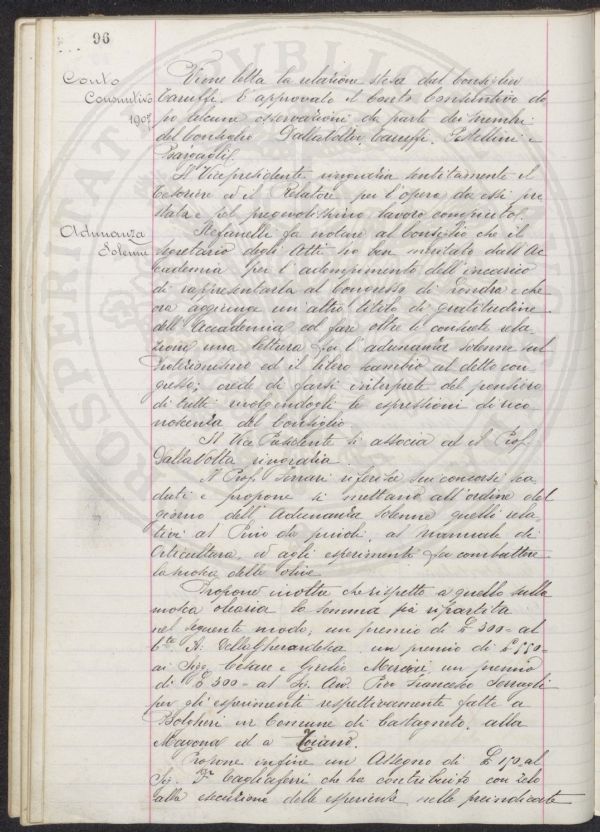 96
Conto
Consuntivo
1907
Viene letta la relazione stesa dal Consigliere
Taruffi. È approvato il Conto Consuntivo do
po alcune osservazioni da parte dei membri
del Consiglio Dallavolta, Taruffi, Pestellini e
Bargagli.
Il Vicepresidente ringrazia sentitamente il
Tesoriere ed il Relatore per l'opera da essi pre
stata e pel pregevolissimo lavoro compiuto.
Adunanza
Solenne
Stefanelli fa notare al Consiglio che il
segretario degli Atti ha ben meritato dall'Ac
cademia per l'adempimento dell'incarico
di rappresentarla al Congresso di Londra e che
ora aggiunge un altro titolo di gratitudine
dell'Accademia col fare oltre la consueta rela
zione una lettura per l'adunanza solenne sul
ed il libero scambio al detto con
gresso; crede di farsi interprete del pensiero
di tutti rivolgendogli le espressioni di rico
noscenza del Consiglio.
Il Vice Presidente si associa ed il Prof.
Dallavolta ringrazia.
Il Prof. Ferrari riferisce sui concorsi sca
duti e propone si mettano all'ordine del
giorno dell'Adunanza solenne quelli rela
tivi al Pino da pinoli, al manuale di
Orticultura, ed agli esperimenti per combattere
la mosca delle olive
Propone inoltre che rispetto a quello sulla
mosca olearia la somma sia ripartita
nel seguente modo; un premio di £ 300= al
Cte A. Della Gherardesca un premio di £ 550=
ai Sigg. Cesare e Giulio un premio
di £ 300= al Sig. Avv. Pier Francesco Serragli
per gli esperimenti respettivamente fatti a
Bolgheri in Comune di Castagneto, alla
Mavona ed a Toiano.
Propone infine un Assegno di £ 150= al
Sig. Dr. Tagliaferri che ha contribuito con zelo
alla esecuzione delle esperienze nelle preindicate